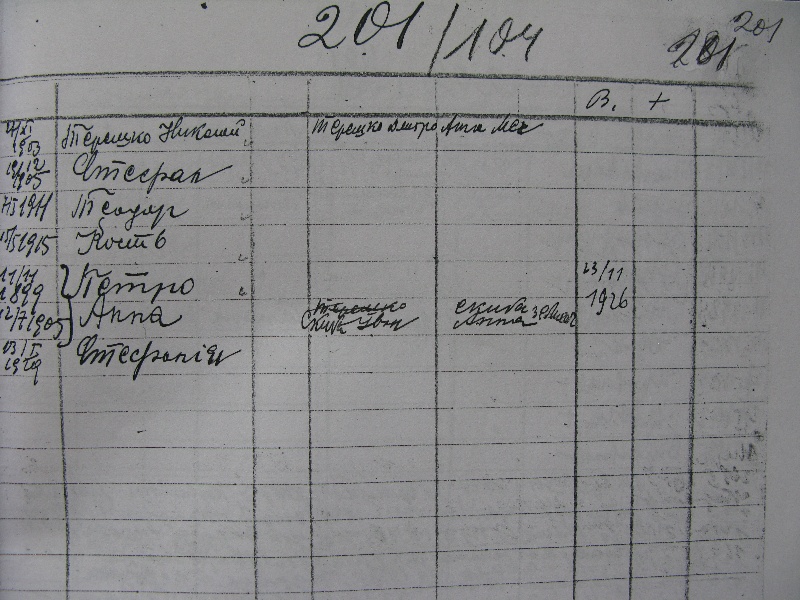 201/104
201 201
В. +
1903 Терешко Николай Терешко Дмитро Анна
19/12
1905 Стефан
1911 Теодор
1915 Кость
11/11
1899 Петро 23/11
1926
12/7 1905 Анна Терешко
Скиба Іван Скиба
Анна
1929 Стефанія